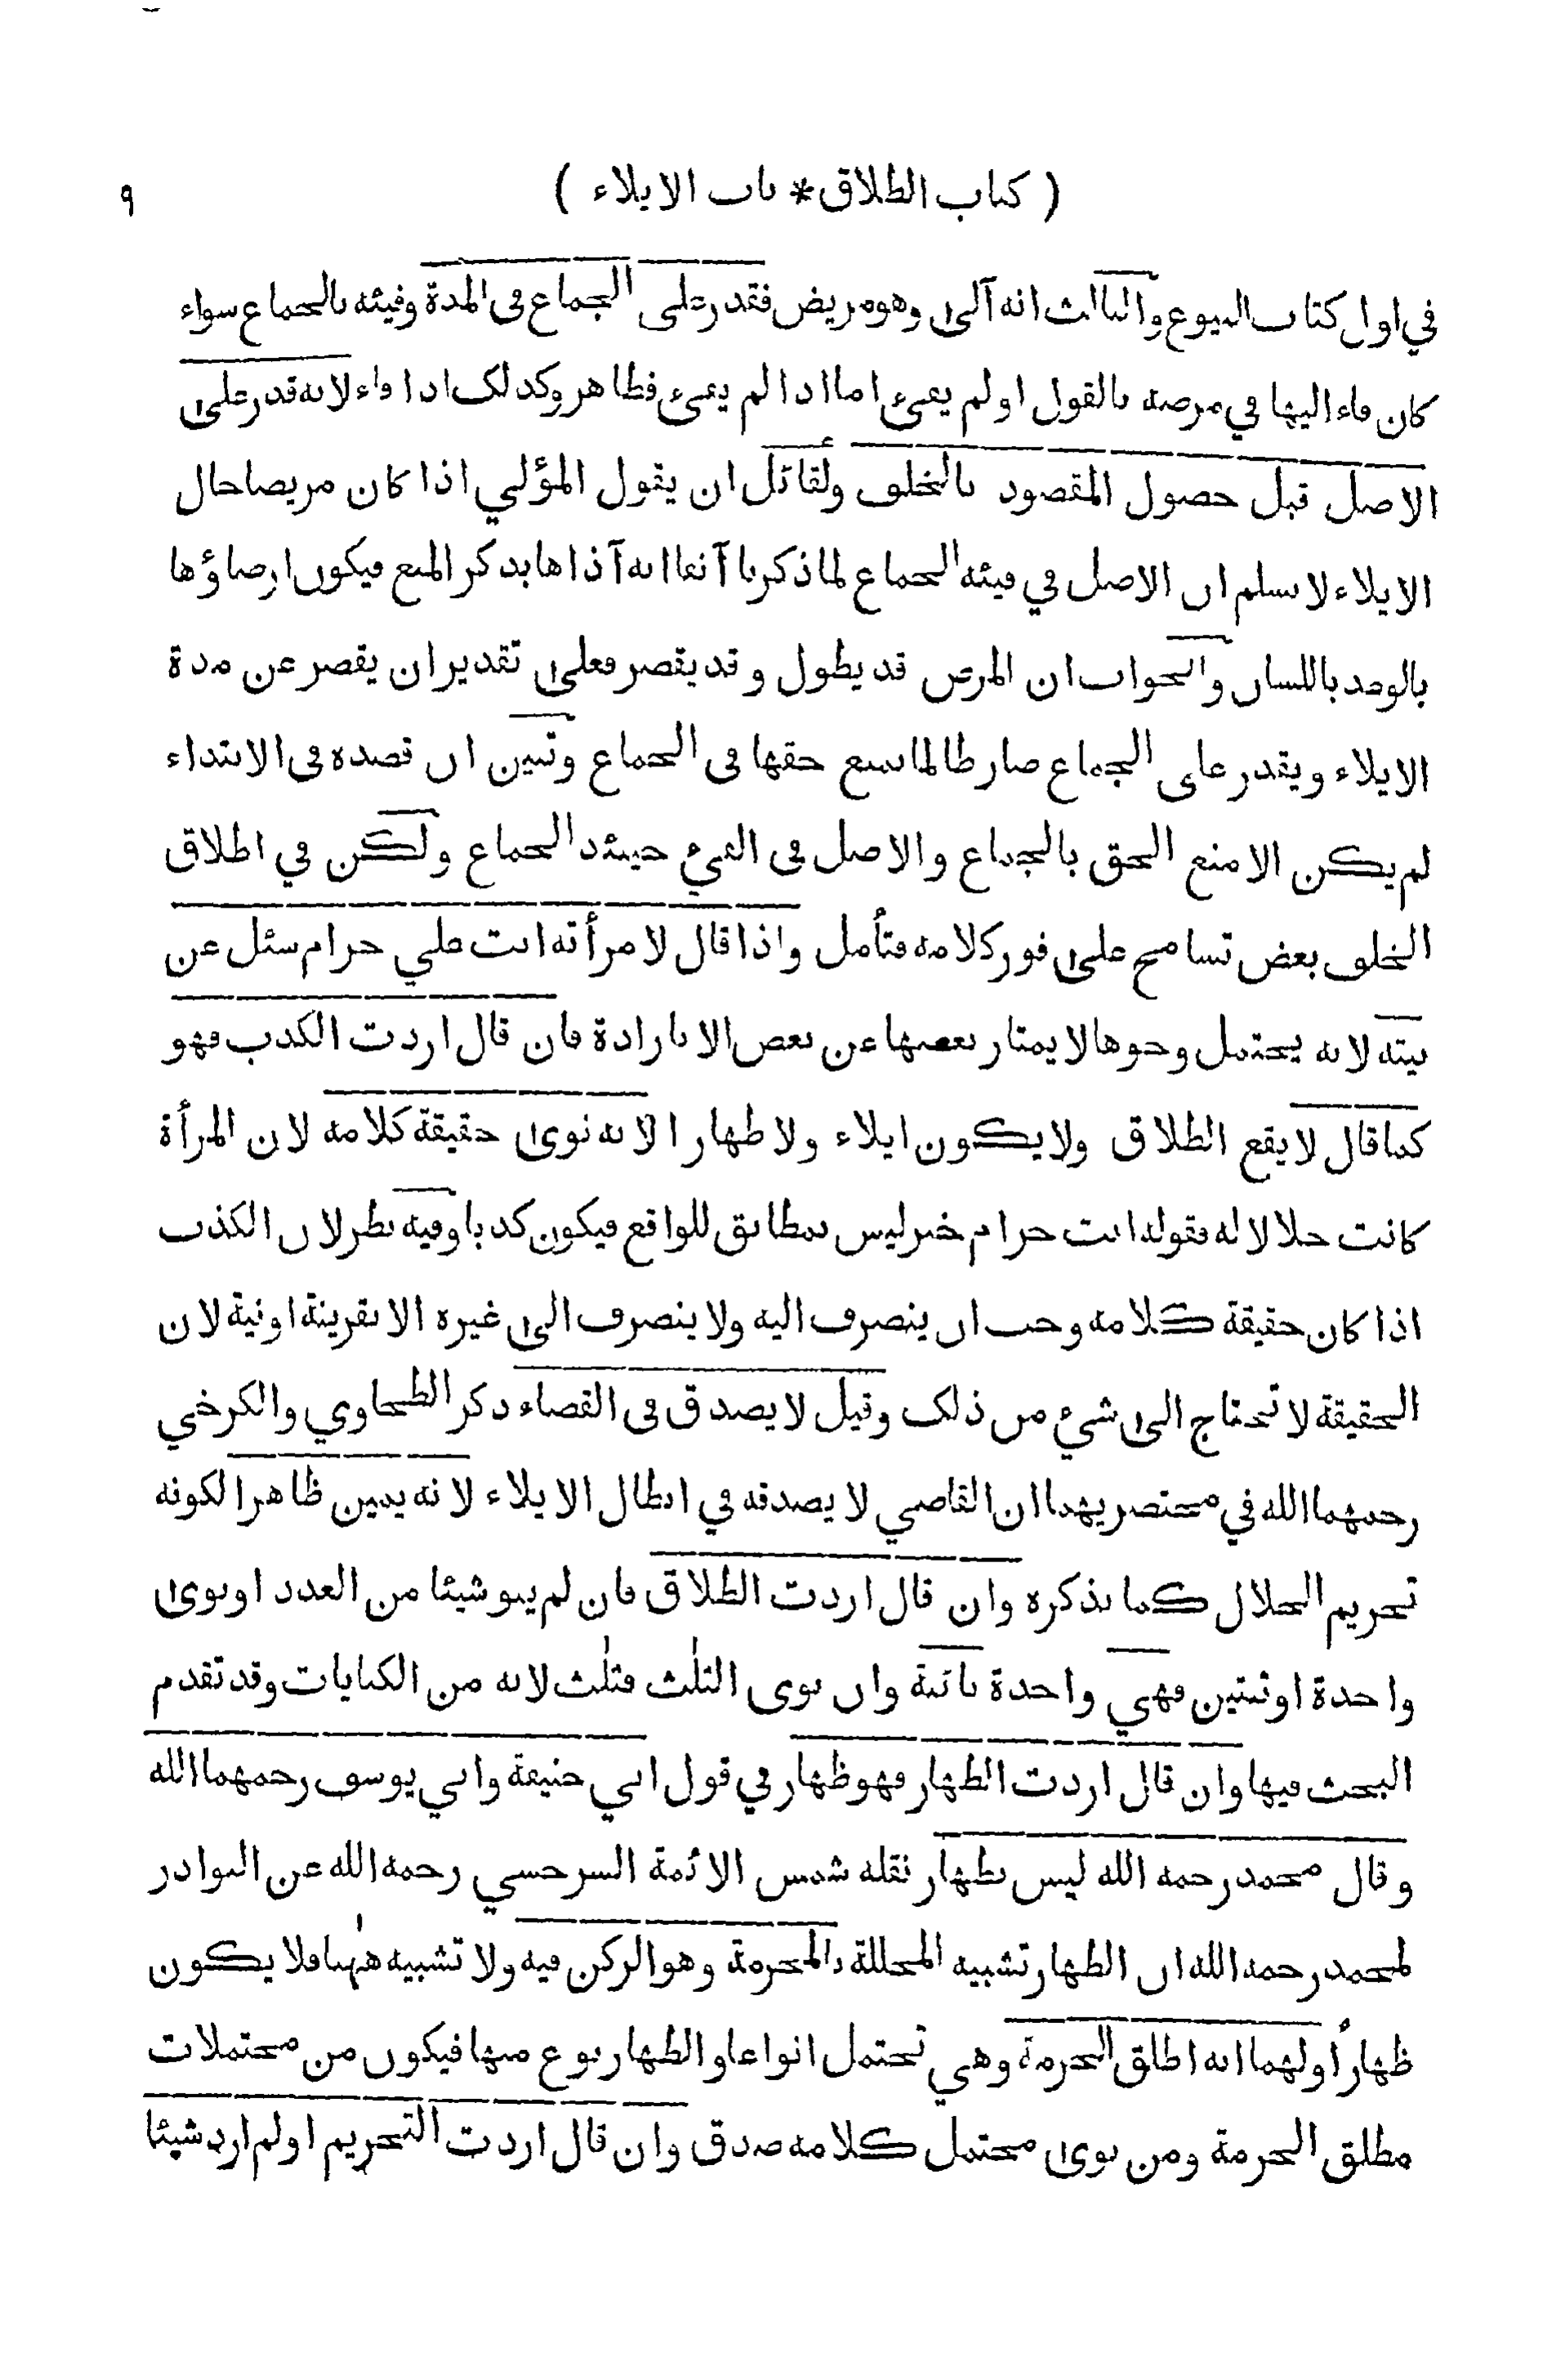 ( كتاب الطلاق * باب الايلاء ) ٩
في اول كتاب البيوع والثالث انه آلى وهو مريض فقدر على الجماع فى المدة وفيئه بالجماع سواء
كان فاء اليها في مرضه بالقول او لم يفئ اما اذا لم يفئ فظاهر وكذلك اذا فاء لانه قدر على
الاصل قبل حصول المقصود بالخلف ولقائل ان يقول المؤلي اذا كان مريضا حال
الايلاء لا نسلم ان الاصل في فيئه الجماع لما ذكرنا آنفا انه آذاها بذكر المنع فيكون ارضاؤها
بالوعد باللسان والجواب ان المرض قد يطول و قد يقصر فعلى تقدير ان يقصر عن مدة
الايلاء ويقدر على الجماع صار ظالما بمنع حقها فى الجماع وتبين ان قصده فى الابتداء
لم يكن الا منع الحق بالجماع والاصل فى الفيء حينئذ الجماع ولكن في اطلاق
الخلف بعض تسامح على فور كلامه فتأمل واذا قال لامرأته انت علي حرام سئل عن
نيته لانه يحتمل وجوها لا يمتاز بعضها عن بعض الا بارادة فان قال اردت الكذب فهو
كما قال لا يقع الطلاق ولا يكون ايلاء ولا ظهارا لانه نوى حقيقة كلامه لان المرأة
كانت حلالا له فقوله انت حرام خبر ليس بمطابق للواقع فيكون كذبا وفيه نظر لان الكذب
اذا كان حقيقة كلامه وجب ان ينصرف اليه ولا ينصرف الى غيره الا بقرينة او نية لان
الحقيقة لا تحتاج الى شيء من ذلك وقيل لا يصدق فى القضاء ذكر الطحاوي والكرخي
رحمهما الله في مختصريهما ان القاضي لا يصدقه في ابطال الايلاء لانه يمين ظاهرا لكونه
تحريم الحلال كما نذكره وان قال اردت الطلاق فان لم ينو شيئا من العدد او نوى
واحدة او ثنتين فهي واحدة بائنة وان نوى الثلٰث فثلٰث لانه من الكنايات وقد تقدم
البحث فيها وان قال اردت الظهار فهو ظهار في قول ابي حنيفة وابي يوسف رحمهما الله
وقال محمد رحمه الله ليس بظهار نقله شمس الائمة السرخسي رحمه الله عن النوادر
لمحمد رحمه الله ان الظهار تشبيه المحللة بالمحرمة وهو الركن فيه ولا تشبيه هٰهنا فلا يكون
ظهارا ولهما انه اطلق الحرمة وهي تحتمل انواعا والظهار نوع منها فيكون من محتملات
مطلق الحرمة ومن نوى محتمل كلامه صدق وان قال اردت التحريم او لم ارد شيئا